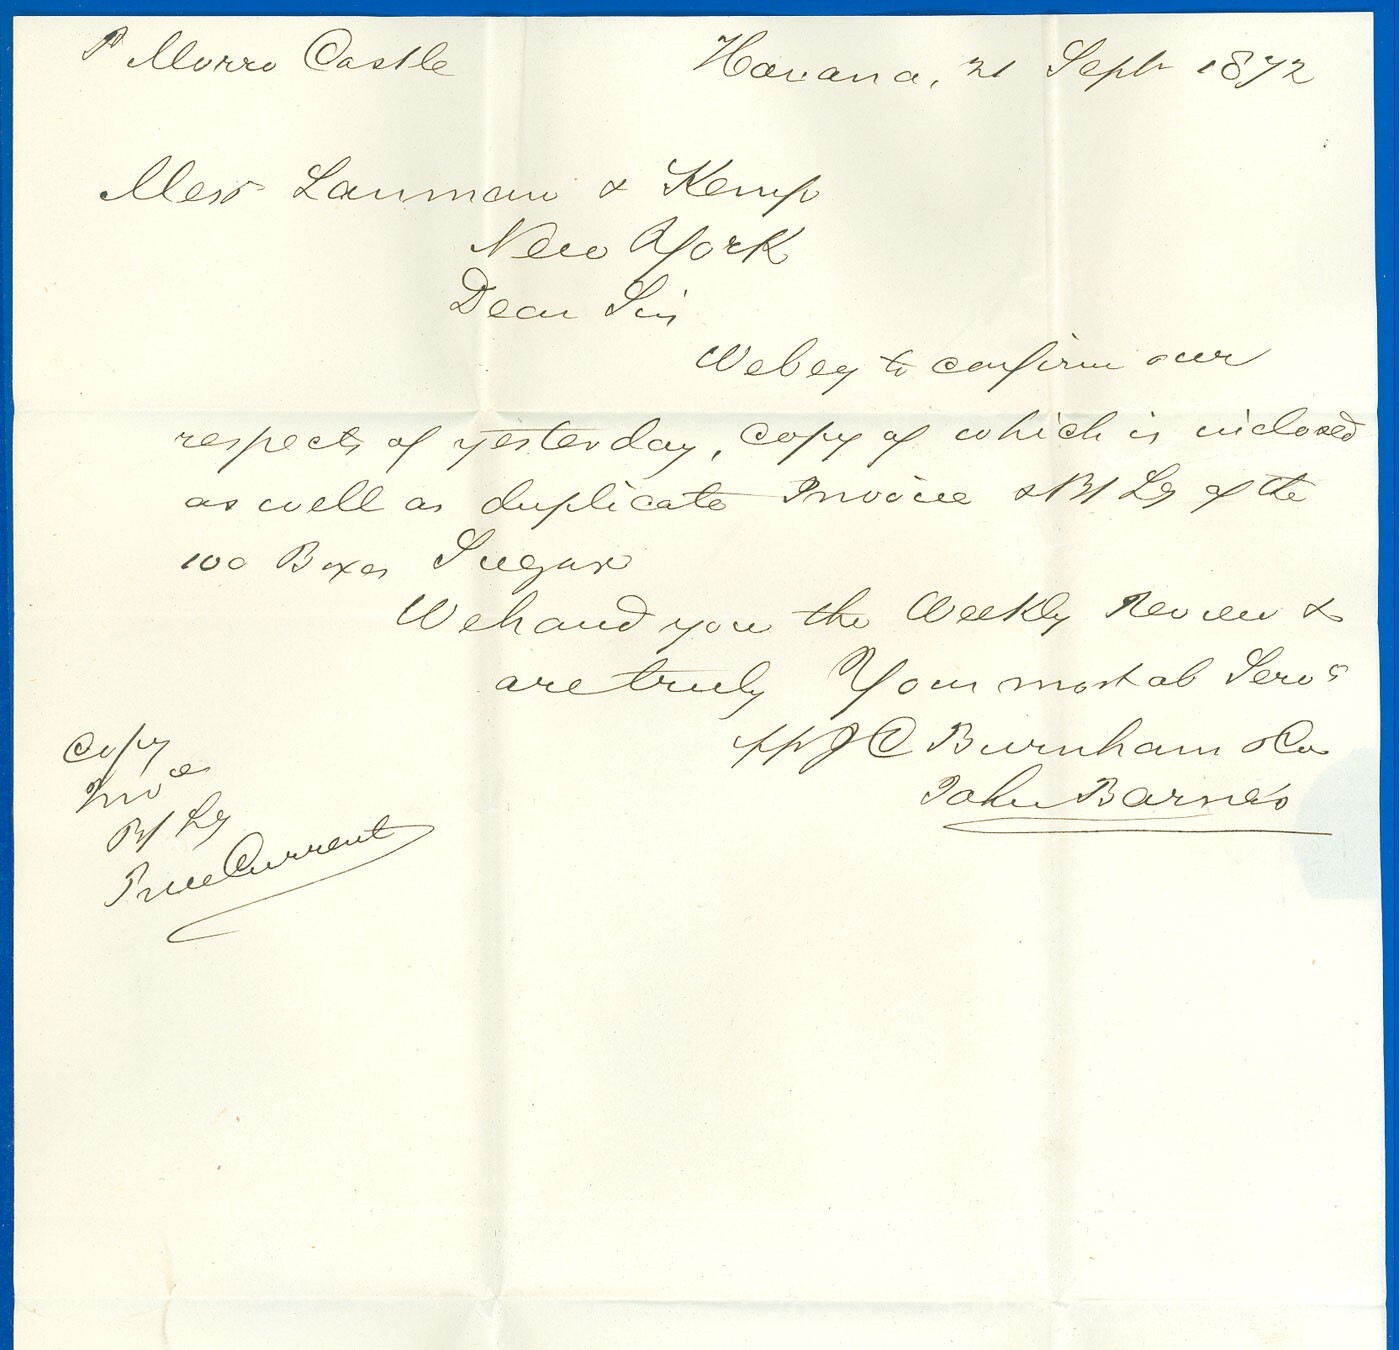 P Morro Castle
Havana, 21 Sept 1872
Mess Lanman & Kemp
New York
Dear Sirs
We beg to confirm our
respects of yesterday, copy of which is inclosed
as well as duplicate Invoice & B/ Lg of the
100 Boxes Sugar
We hand you the Weekly Review &
are truly Your most ob Servs
pp J C Burnham & Co
John Barnes
Copy
Invce
B/ Lg
Price Current